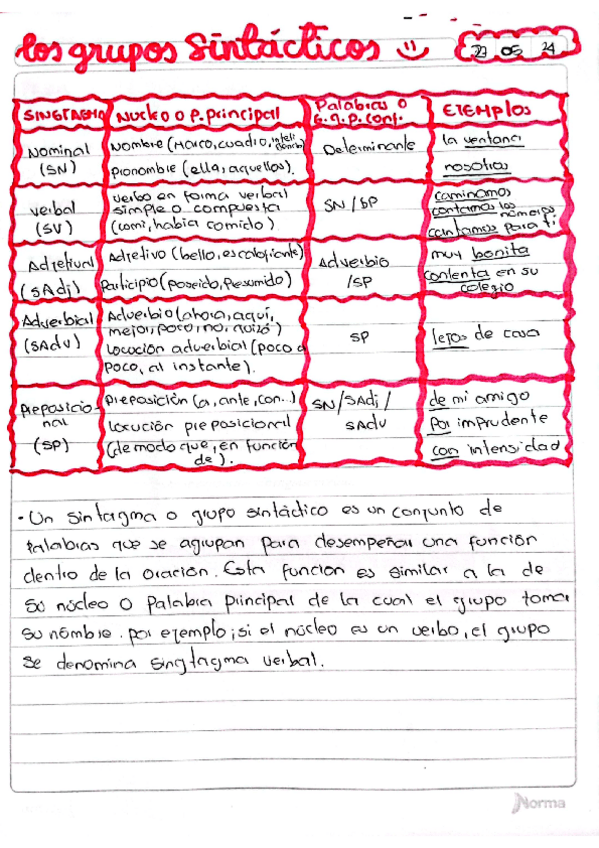 los grupos Sintácticos
23 05 24
SINGTAGMO
Nucleo o P. principal
Palabras o
G. q. p. cont.
EJEMPLOS
Nominal
(SN)
Nombre (Marco, cuadro, inteligencia)
pronombre (ella, aquellos).
Determinante
la ventana
nosotros
verbal
(SV)
verbo en forma verbal
simple o compuesta
(comi, habia comido)
SN / SP
caminamos
contamos los números
cantamos para ti
Adjetival
(SAdj)
Adjetivo (bello, escalofriante)
Participio (poseido, Presumido)
Adverbio
/SP
muy bonita
contenta en su
colegio
Adverbial
(SAdv)
Adverbio (ahora, aqui,
mejor, poco, no, quizá)
Locución adverbial (poco a
poco, al instante).
SP
lejos de casa
Preposicio-
nal
(SP)
Preposición (a, ante, con...)
Locución preposicional
(de modo que, en función
de).
SN/SAdj/
SAdv
de mi amigo
Por imprudente
con intensidad
• Un sintagma o grupo sintáctico es un conjunto de
Palabras que se agrupan para desempeñar una función
dentro de la oración. Esta funcion es similar a la de
Su núcleo o Palabra principal de la cual el grupo toma
Su nómbre. por ejemplo; si el núcleo es un verbo, el grupo
Se denomina singtagma verbal.
Norma